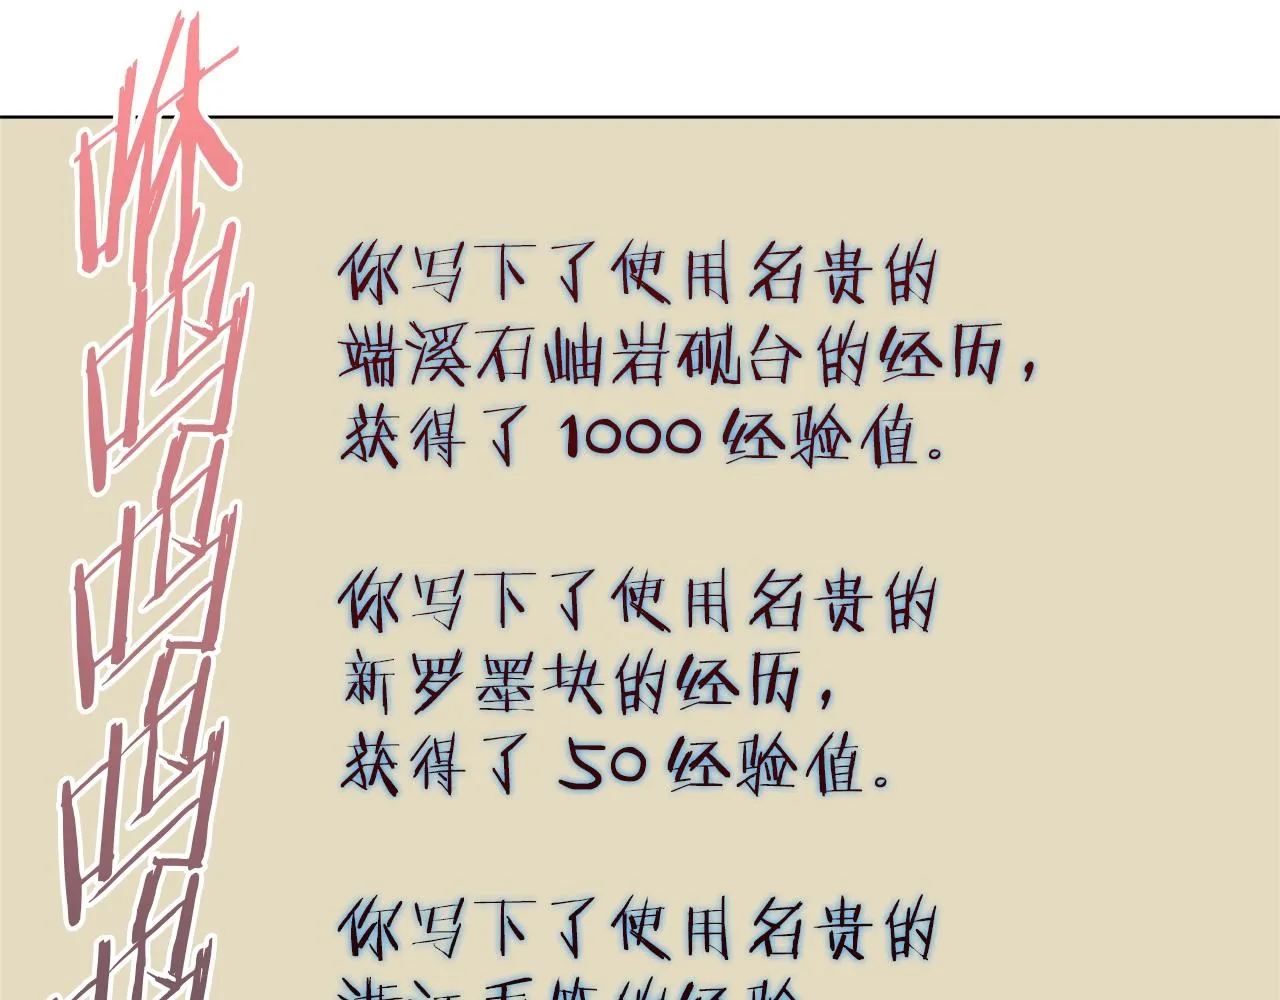 咻
嗚
嗚
嗚
你写下了使用名贵的
端溪石岫岩砚台的经历，
获得了 1000 经验值。
你写下了使用名贵的
新罗墨块的经历，
获得了 50 经验值。
你写下了使用名贵的